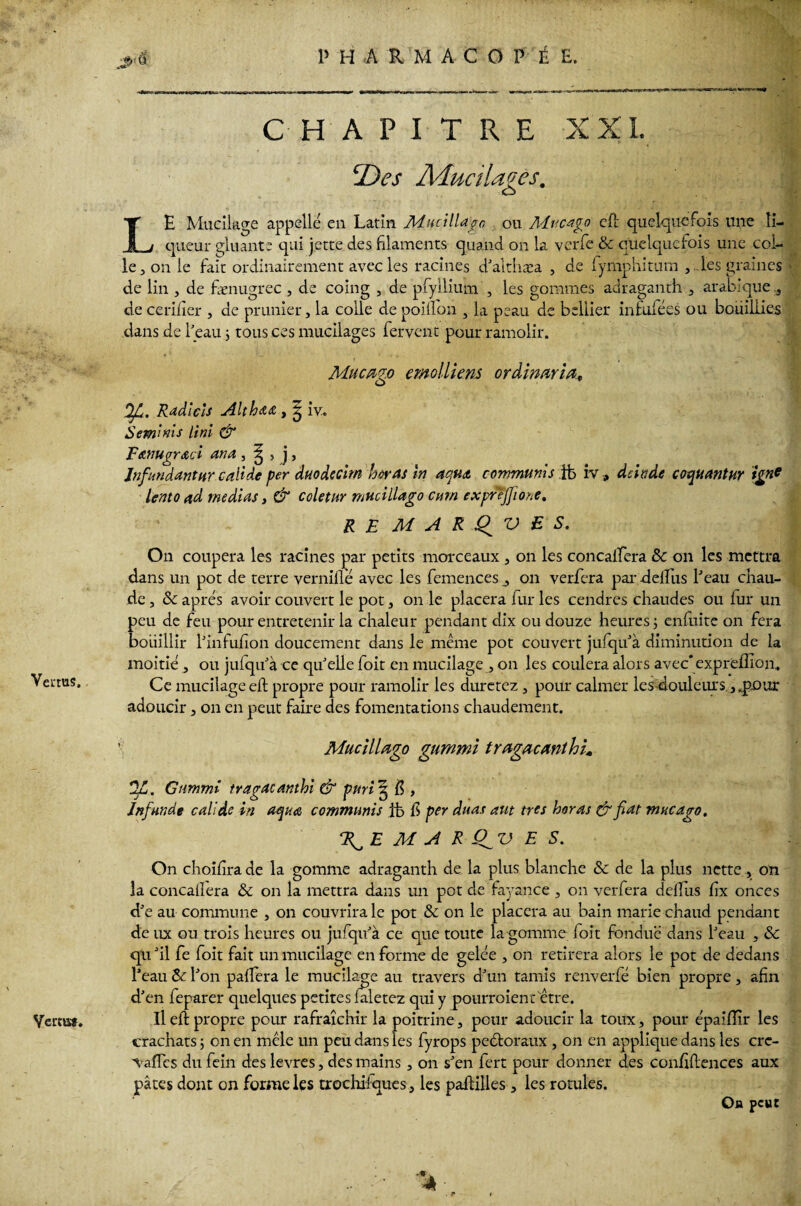 PHARMACOPÉE.
CHAPITRE XXI.
Des Mucilages.
LE Mucilage appellé en Latin Mucillago ou Mucago eſt quelquefois une li-
queur gluante qui jette des filaments quand on la verſe & quelquefois une col-
le, on le fait ordinairement avec les racines d'althæa, de ſymphitum, les graines
de lin, de fænugrec, de coing, de pſyllium, les gommes adraganth, arabique,
de ceriſier, de prunier, la colle de poiſſon, la peau de bellier infuſées ou boüillies
dans de l'eau; tous ces mucilages ſervent pour ramolir.
Mucago emolliens ordinaria.
♃. Radicis Althææ, ℥ iv.
Seminis lini &
Fænugræci ana, ℥, j,
Infundantur calide per duodecim horas in aquæ communis ℔ iv, deinde coquantur igne
lento ad medias, & coletur mucillago cum expreſſione.
REMARQVES.
On coupera les racines par petits morceaux, on les concaſſera & on les mettra
dans un pot de terre verniſſé avec les ſemences, on verſera par deſſus l'eau chau-
de, & aprés avoir couvert le pot, on le placera ſur les cendres chaudes ou ſur un
peu de feu pour entretenir la chaleur pendant dix ou douze heures; enſuite on fera
boüillir l'infuſion doucement dans le même pot couvert juſqu'à diminution de la
moitié, ou juſqu'à ce qu'elle ſoit en mucilage, on les coulera alors avec expreſſion.
Vertus.
Ce mucilage eſt propre pour ramolir les duretez, pour calmer les douleurs, pour
adoucir, on en peut faire des fomentations chaudement.
Mucillago gummi tragacanthi.
♃. Gummi tragacanthi & puri ℥ ß,
Infunde calide in aquæ communis ℔ ß per duas aut tres horas & fiat mucago.
REMARQVES.
On choiſira de la gomme adraganth de la plus blanche & de la plus nette, on
la concaſſera & on la mettra dans un pot de fayance, on verſera deſſus ſix onces
d'e au commune, on couvrira le pot & on le placera au bain marie chaud pendant
de ux ou trois heures ou juſqu'à ce que toute la gomme ſoit fonduë dans l'eau, &
qu'il ſe ſoit fait un mucilage en forme de gelée, on retirera alors le pot de dedans
l'eau & l'on paſſera le mucilage au travers d'un tamis renverſé bien propre, afin
d'en ſeparer quelques petites ſaletez qui y pourroient être.
Vertus.
Il eſt propre pour rafraîchir la poitrine, pour adoucir la toux, pour épaiſſir les
crachats; on en mêle un peu dans les ſyrops pectoraux, on en applique dans les cre-
vaſſes du ſein des levres, des mains, on s'en ſert pour donner des conſiſtences aux
pâtes dont on forme les trochiſques, les paſtilles, les rotules.
On peut